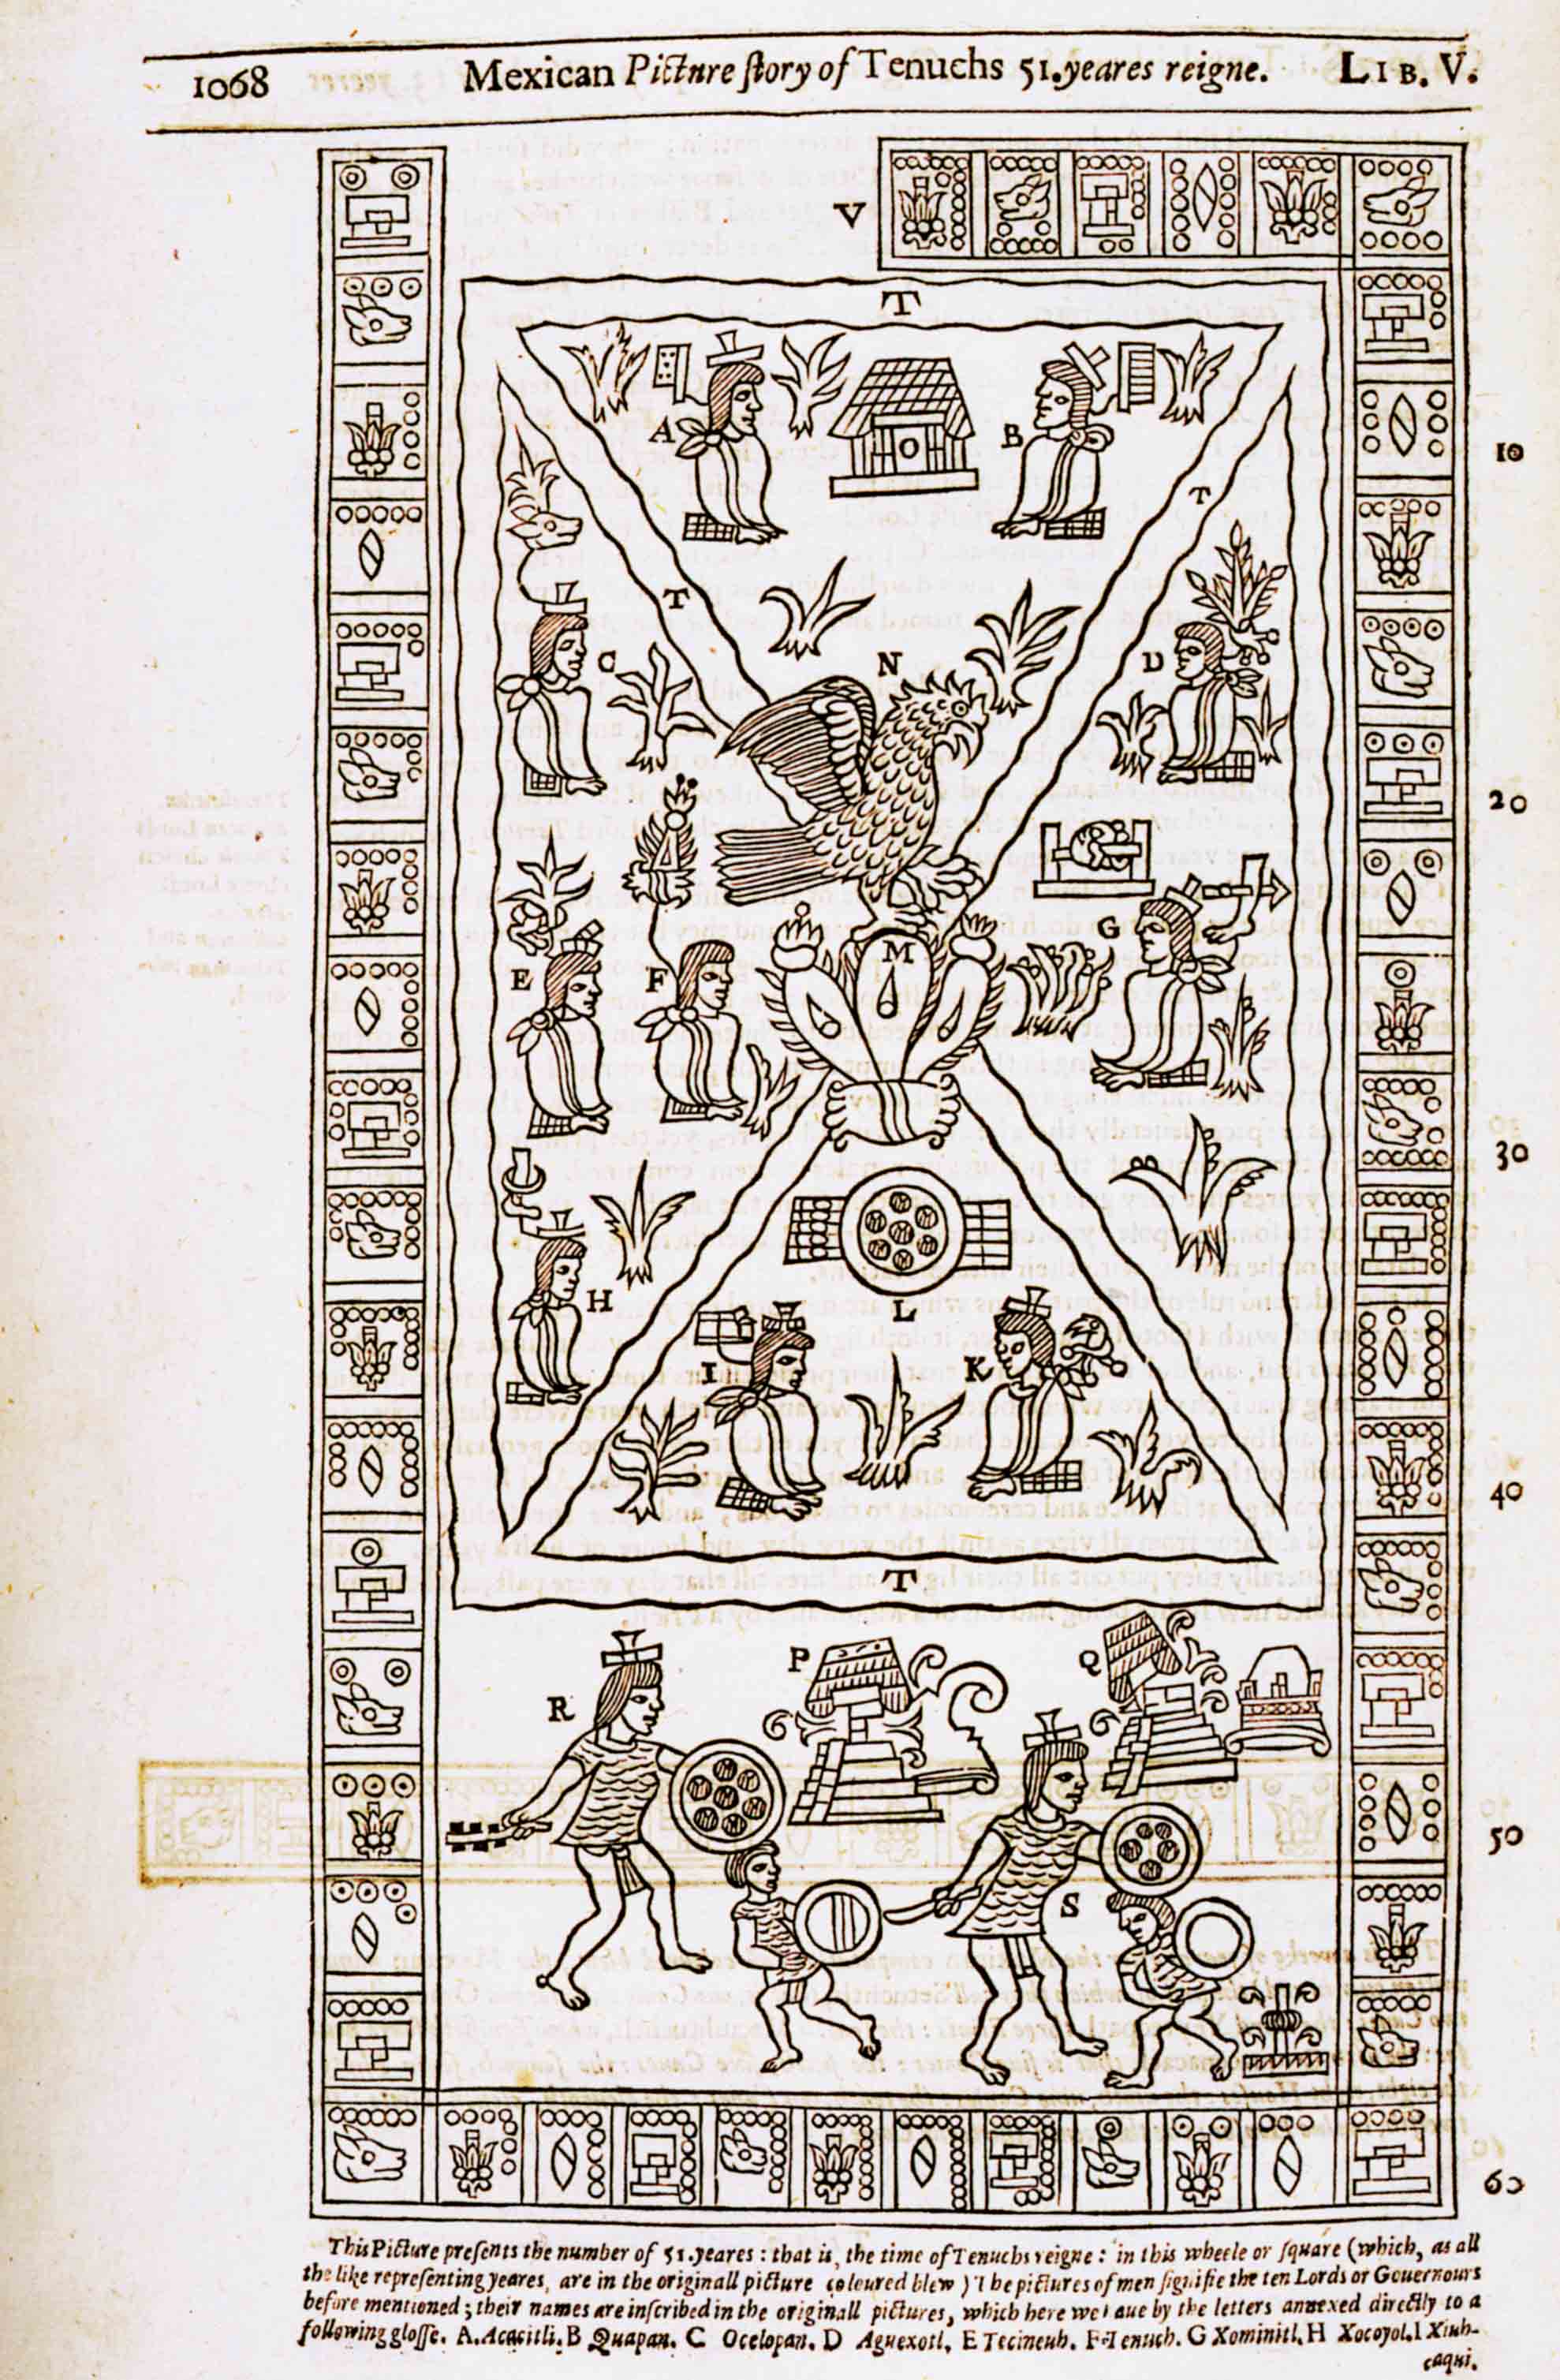 1068 Mexican Picture ſtory of Tenuchs 51.yeares reigne. LIB. V.
V
T
A
B
10
T
T
C
N
D
20
E
F
M
G
30
H
L
I
K
40
T
P
Q
R
50
S
60
This Picture preſents the number of 51.yeares : that is, the time of Tenuchs reigne : in this wheele or ſquare (which, as all
the like repreſenting yeares, are in the originall picture coloured blew ) The pictures of men ſignifie the ten Lords or Gouernours
before mentioned ; their names are inſcribed in the originall pictures, which here we haue by the letters annexed directly to a
following gloſſe. A.Acacitli. B Quapan. C Ocelopan. D Aguexotl, E Tecineuh. F Tenuch. G Xominitl, H Xocoyol. I Xiuh-
caqui.